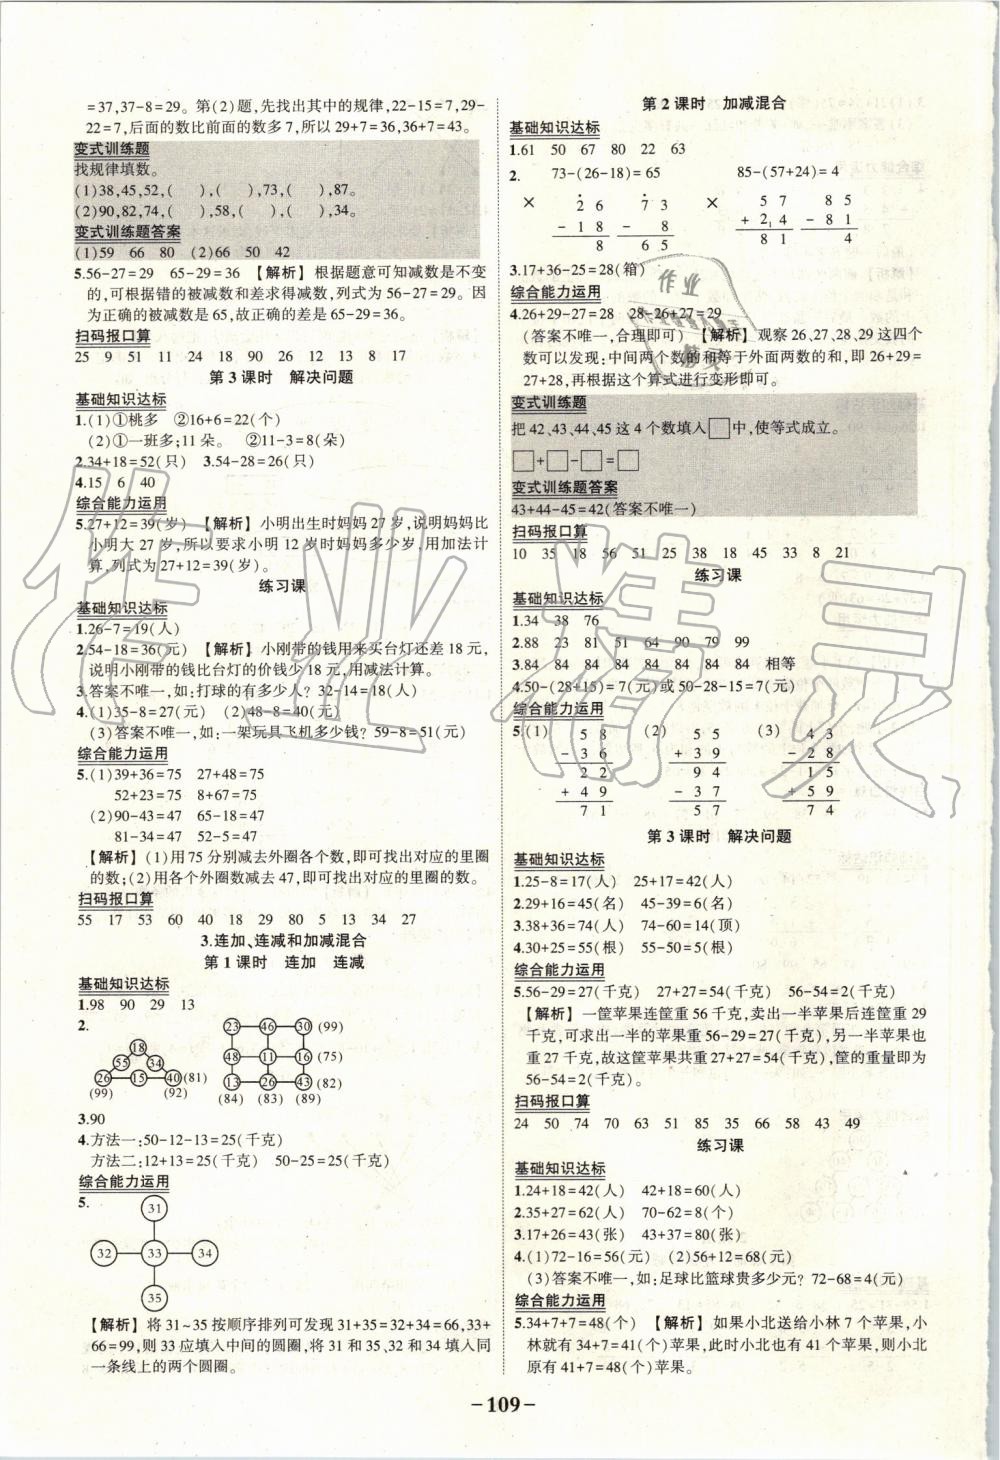 =37,37-8=29。第(2)题,先找出其中的规律,22-15=7,29-
22=7,后面的数比前面的数多7,所以29+7=36,36+7=43。
变式训练题
找规律填数。
(1)38,45,52,(  ),(  ),73,(  ),87。
(2)90,82,74,(  ),58,(  ),(  ),34。
变式训练题答案
(1)59 66 80 (2)66 50 42
5.56-27=29 65-29=36 【解析】根据题意可知减数是不变
的,可根据错的被减数和差求得减数,列式为56-27=29。因
为正确的被减数是65,故正确的差是65-29=36。
扫码报口算
25 9 51 11 24 18 90 26 12 13 8 17
第3课时 解决问题
基础知识达标
1.(1)①桃多 ②16+6=22(个)
(2)①一班多;11朵。 ②11-3=8(朵)
2.34+18=52(只) 3.54-28=26(只)
4.15 6 40
综合能力运用
5.27+12=39(岁) 【解析】小明出生时妈妈27岁,说明妈妈比
小明大27岁,所以要求小明12岁时妈妈多少岁,用加法计
算,列式为27+12=39(岁)。
练习课
基础知识达标
1.26-7=19(人)
2.54-18=36(元) 【解析】小刚带的钱用来买台灯还差18元,
说明小刚带的钱比台灯的价钱少18元,用减法计算。
3.答案不唯一,如:打球的有多少人? 32-14=18(人)
4.(1)35-8=27(元) (2)48-8=40(元)
(3)答案不唯一,如:一架玩具飞机多少钱? 59-8=51(元)
综合能力运用
5.(1)39+36=75 27+48=75
52+23=75 8+67=75
(2)90-43=47 65-18=47
81-34=47 52-5=47
【解析】(1)用75分别减去外圈各个数,即可找出对应的里圈
的数;(2)用各个外圈数减去47,即可找出对应的里圈的数。
扫码报口算
55 17 53 60 40 18 29 80 5 13 34 27
3.连加、连减和加减混合
第1课时 连加 连减
基础知识达标
1.98 90 29 13
2.
18
55 34
26 15 40 (81)
(99) (92)
23 46 30 (99)
48 11 16 (75)
13 26 43 (82)
(84) (83) (89)
3.90
4.方法一:50-12-13=25(千克)
方法二:12+13=25(千克) 50-25=25(千克)
综合能力运用
5.
31
32 33 34
35
【解析】将31~35按顺序排列可发现31+35=32+34=66,33+
66=99,则33应填入中间的圆圈,将31和35、32和34填入同
一条线上的两个圆圈。
第2课时 加减混合
基础知识达标
1.61 50 67 80 22 63
2. 73-(26-18)=65 85-(57+24)=4
× 2 6 7 3 × 5 7 8 5
- 1 8 - 8 + 2 4 - 8 1
8 6 5 8 1 4
3.17+36-25=28(箱)
综合能力运用
4.26+29-27=28 28-26+27=29
(答案不唯一,合理即可) 【解析】观察26、27、28、29这四个
数可以发现:中间两个数的和等于外面两数的和,即26+29=
27+28,再根据这个算式进行变形即可。
变式训练题
把42、43、44、45这4个数填入□中,使等式成立。
□+□-□=□
变式训练题答案
43+44-45=42(答案不唯一)
扫码报口算
10 35 18 56 51 25 38 18 45 33 8 21
练习课
基础知识达标
1.34 38 76
2.88 23 81 51 64 90 79 99
3.84 84 84 84 84 84 84 84 相等
4.50-(28+15)=7(元)或50-28-15=7(元)
综合能力运用
5.(1) 5 8 (2) 5 5 (3) 4 3
- 3 6 + 3 9 - 2 8
2 2 9 4 1 5
+ 4 9 - 3 7 + 5 9
7 1 5 7 7 4
第3课时 解决问题
基础知识达标
1.25-8=17(人) 25+17=42(人)
2.29+16=45(名) 45-39=6(名)
3.38+36=74(人) 74-60=14(顶)
4.30+25=55(根) 55-50=5(根)
综合能力运用
5.56-29=27(千克) 27+27=54(千克) 56-54=2(千克)
【解析】一筐苹果连筐重56千克,卖出一半苹果后连筐重29
千克,可求出一半的苹果重56-29=27(千克),另一半苹果也
重27千克,故这筐苹果共重27+27=54(千克),筐的重量即为
56-54=2(千克)。
扫码报口算
24 50 74 70 63 51 85 35 66 58 43 49
练习课
基础知识达标
1.24+18=42(人) 42+18=60(人)
2.35+27=62(人) 70-62=8(个)
3.17+26=43(张) 43+37=80(张)
4.(1)72-16=56(元) (2)56+12=68(元)
(3)答案不唯一,如:足球比篮球贵多少元? 72-68=4(元)
综合能力运用
5.34+7+7=48(个) 【解析】如果小北送给小林7个苹果,小
林就有34+7=41(个)苹果,此时小北也有41个苹果,则小北
原有41+7=48(个)苹果。
-109-
作业精灵
作业
精灵